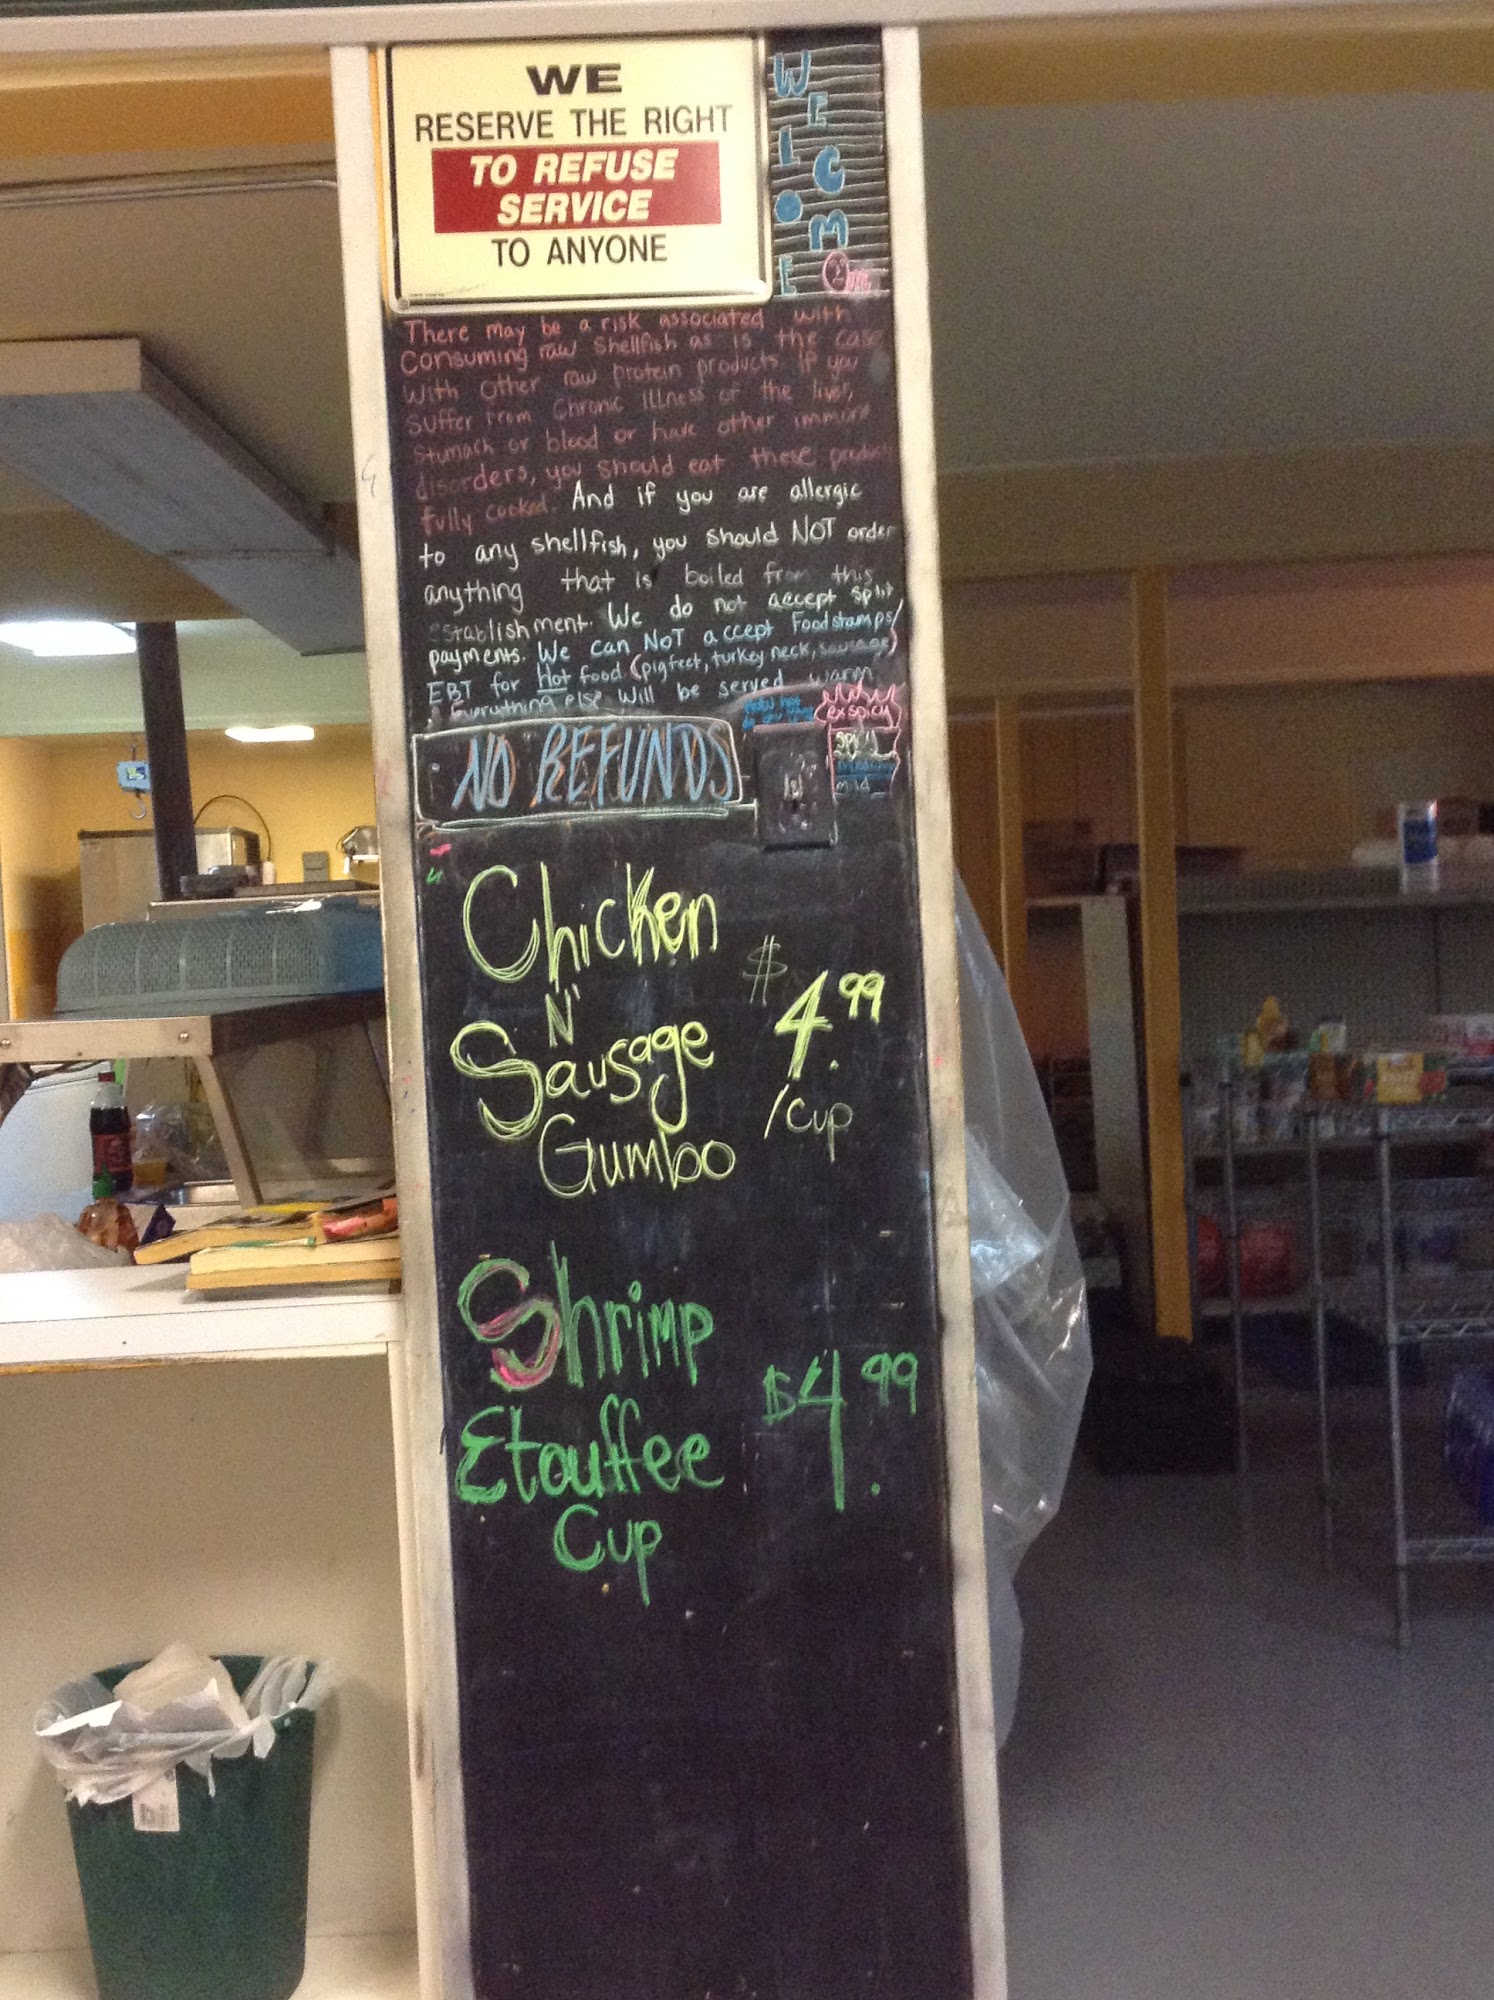 WE
RESERVE THE RIGHT
TO REFUSE
SERVICE
TO ANYONE
WELCOME
There may be a risk associated with
consuming raw shellfish as is the case
with other raw protein products. If you
suffer from chronic illness of the liver,
stumach or blood or have other immune
disorders, you should eat these
fully cooked. And if you are allergic
to any shellfish, you should NOT order
anything that is boiled from this
establishment. We do not accept split
payments. We can NOT accept Foodstamps/
EBT for Hot food (pigfeet, turkey neck, sausage)
Everything else will be served warm
exspicy
spicy
mild
NO REFUNDS
Chicken
N'
Sausage
Gumbo
$4.99
/cup
Shrimp
Etouffee
Cup
$4.99